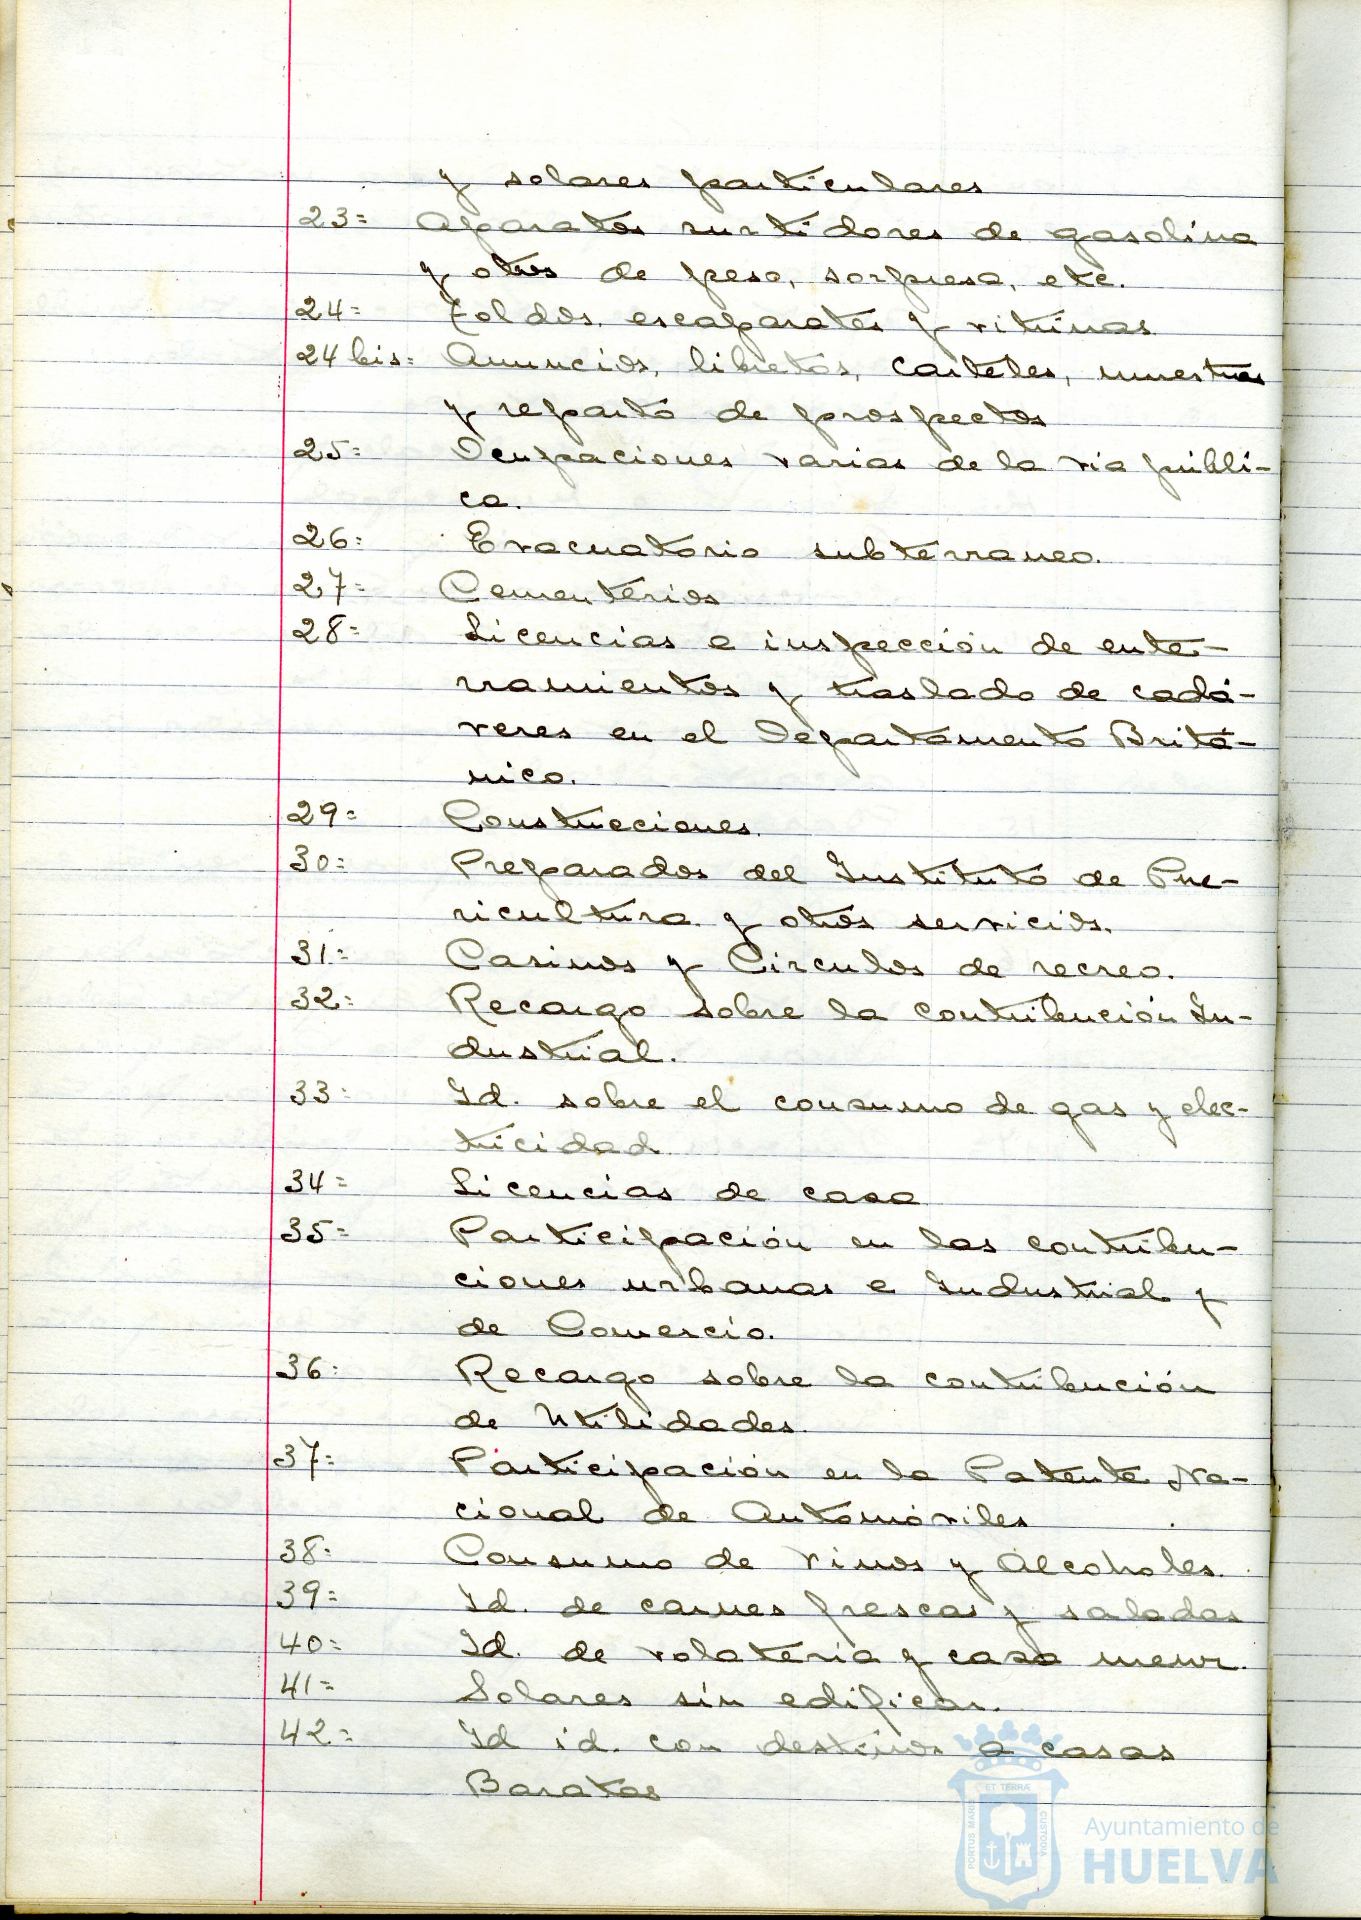 y solares particulares
23= Aparatos surtidores de gasolina
y otros de peso, sorpresa, etc.
24= Toldos, escaparates y vitrinas
24 bis= Anuncios, libretos, carteles, muestras
y reparto de prospectos
25= Ocupaciones varias de la via públi-
ca.
26= Evacuatorio subterraneo.
27= Cementerios
28= Licencias e inspección de ente-
rramientos y traslado de cadá-
veres en el Departamento Britá-
nico.
29= Construcciones.
30= Preparados del Instituto de Pue-
ricultura y otros servicios.
31= Casinos y Circulos de recreo.
32= Recargo sobre la contribución In-
dustrial.
33= Id. sobre el consumo de gas y elec-
tricidad
34= Licencias de casa
35= Participación en las contribu-
ciones urbanas e Industrial y
de Comercio.
36= Recargo sobre la contribución
de Utilidades.
37= Participación en la Patente Na-
cional de Automóviles
38= Consumo de vinos y Alcoholes.
39= Id. de carnes frescas y saladas
40= Id. de volateria y casa menor.
41= Solares sin edificar.
42= Id id. con destinos a casas
Baratas
PORTUS MARIS ET TERRÆ CUSTODIA
Ayuntamiento de
HUELVA